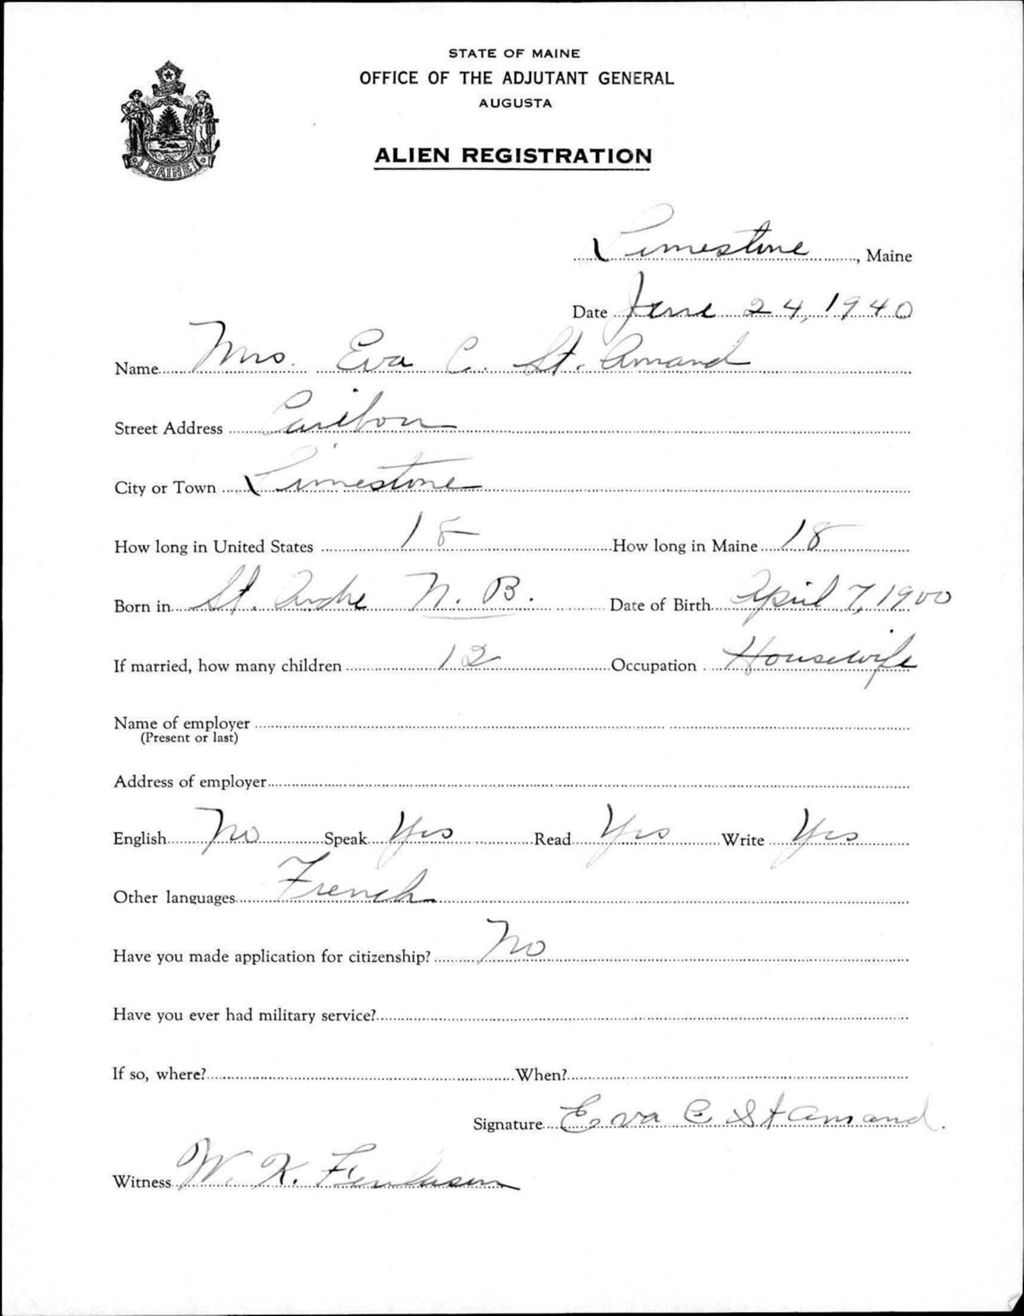 STATE OF MAINE
OFFICE OF THE ADJUTANT GENERAL
AUGUSTA
MAINE
ALIEN REGISTRATION
Limestone, Maine
Date June 24, 1940
Name Mrs. Eva C. St. Amand
Street Address Caribou
City or Town Limestone
How long in United States 18 How long in Maine 18
Born in St. Andre N. B. Date of Birth April 7, 1900
If married, how many children 12 Occupation Housewife
Name of employer
(Present or last)
Address of employer
English No Speak Yes Read Yes Write Yes
Other languages French
Have you made application for citizenship? No
Have you ever had military service?
If so, where? When?
Signature Eva C St Amand.
Witness W. K.